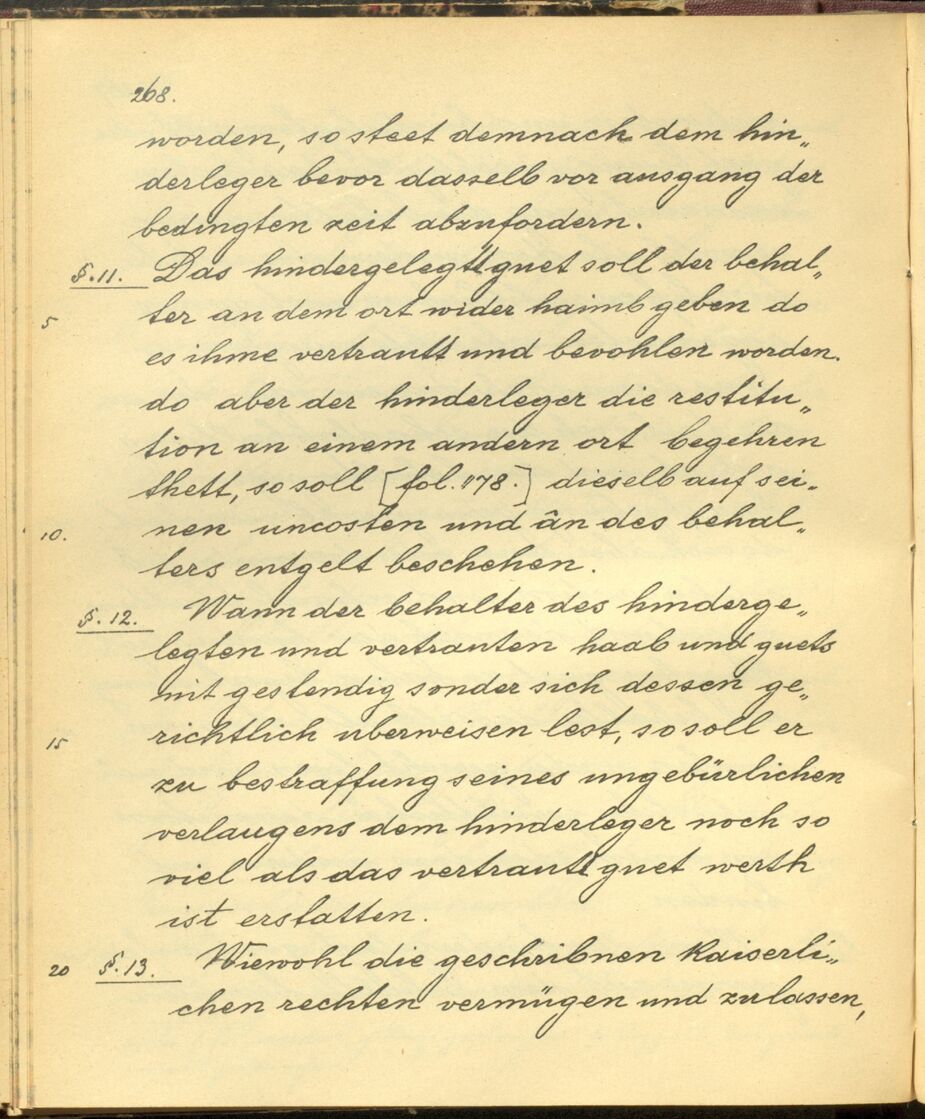 268.
worden, so steet demnach dem hin„
derleger bevor dasselb vor ausgang der
bedingten zeit abzufordern.
§. 11. Das hindergelegtt guet soll der behal„
5 ter an dem ort wider haimb geben do
es ihme vertrautt und bevohlen worden.
do aber der hinderleger die restitu„
tion an einem andern ort begehren
thett, so soll [fol. 178.] dieselb auf sei„
10. nen uncosten und ân des behal„
ters entgelt beschehen.
§. 12. Wann der behalter des hinderge„
legten und vertrauten haab und guets
nit gestendig sonder sich dessen ge„
15 richtlich uberweisen lest, so soll er
zu bestraffung seines ungebürlichen
verlaugens dem hinderleger noch so
viel als das vertrautt guet werth
ist erstatten.
20 §. 13. Wiewohl die geschribnen kaiserli„
chen rechten vermügen und zulassen,